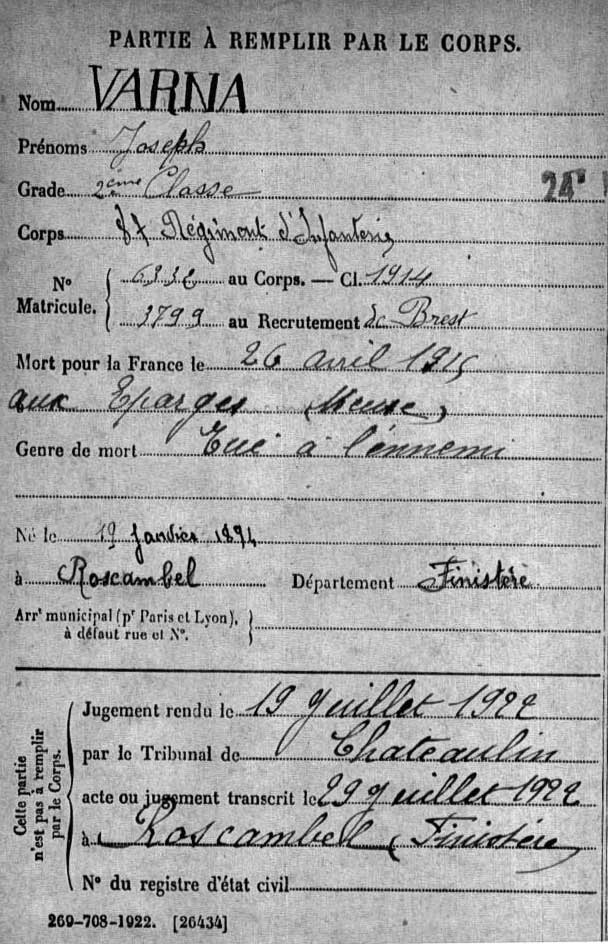 PARTIE À REMPLIR PAR LE CORPS.
Nom VARNA
Prénoms Joseph
Grade 2ème Classe 24
Corps 87 Régiment d'Infanterie
Nº Matricule. 6332 au Corps. — Cl. 1914
3799 au Recrutement de Brest
Mort pour la France le 26 avril 1915
aux Eparges (Meuse)
Genre de mort Tué à l'ennemi
Né le 19 Janvier 1894
à Roscambel Département Finistère
Arrt municipal (pr Paris et Lyon),
à défaut rue et Nº.
Cette partie n'est pas à remplir par le Corps.
Jugement rendu le 19 Juillet 1922
par le Tribunal de Chateaulin
acte ou jugement transcrit le 29 Juillet 1922
à Roscambel (Finistère)
Nº du registre d'état civil
269-708-1922. [26434]